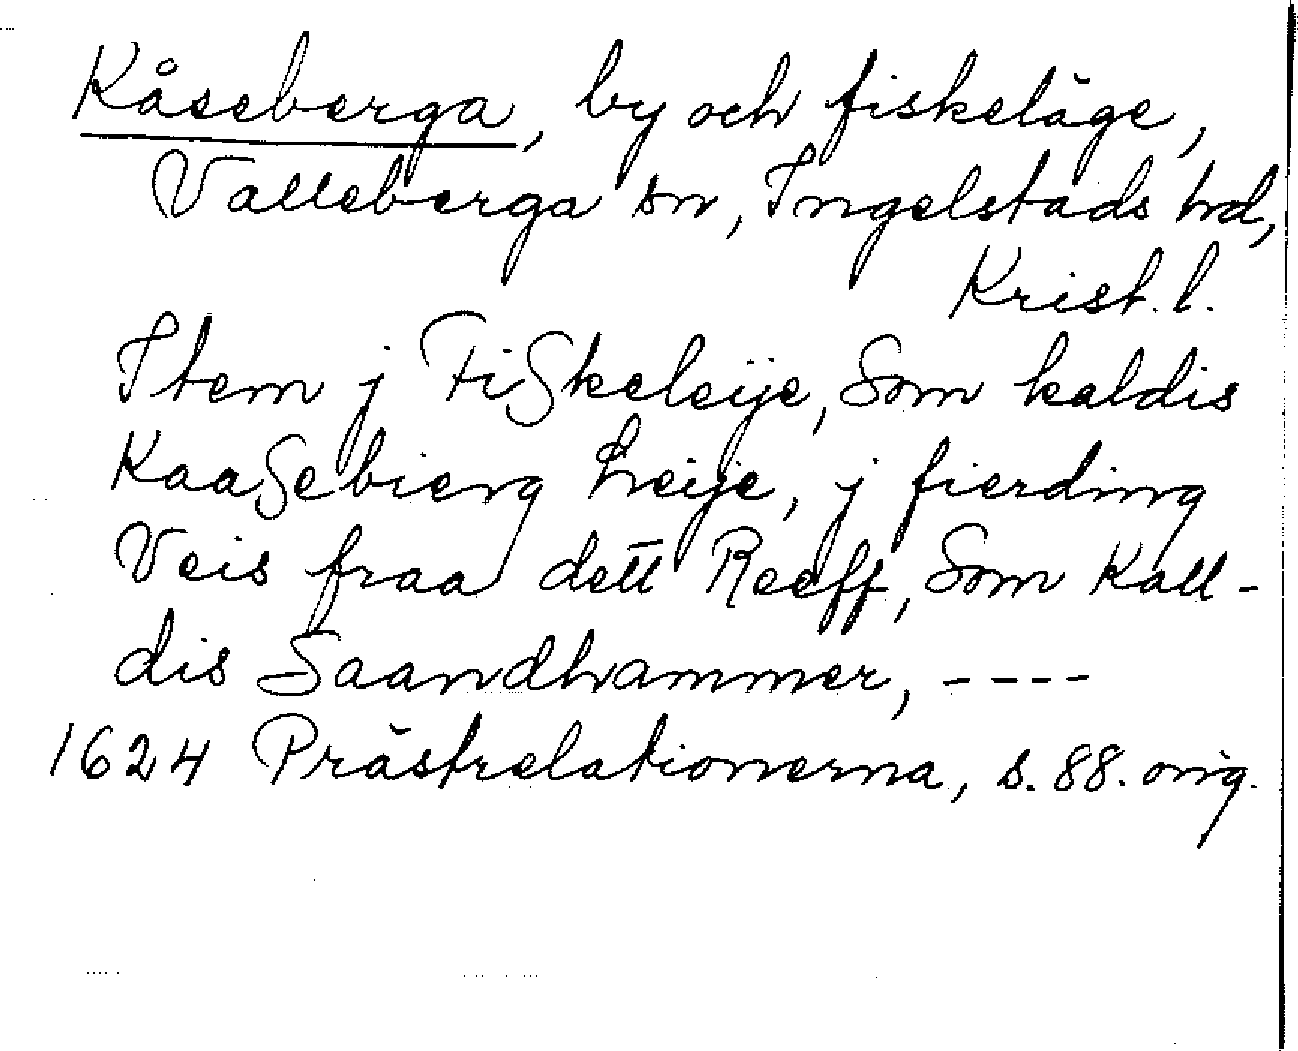 Kåseberga, by och fiskeläge,
Valleberga sn, Ingelstads hd,
Krist. l.
Item j FiSkeleije, Som kaldis
KaaSebierg Leije, j fierding
Veis fraa dett Reeff, Som Kall-
dis Saandhammer, ----
1624 Prästrelationerna, s. 88. orig.